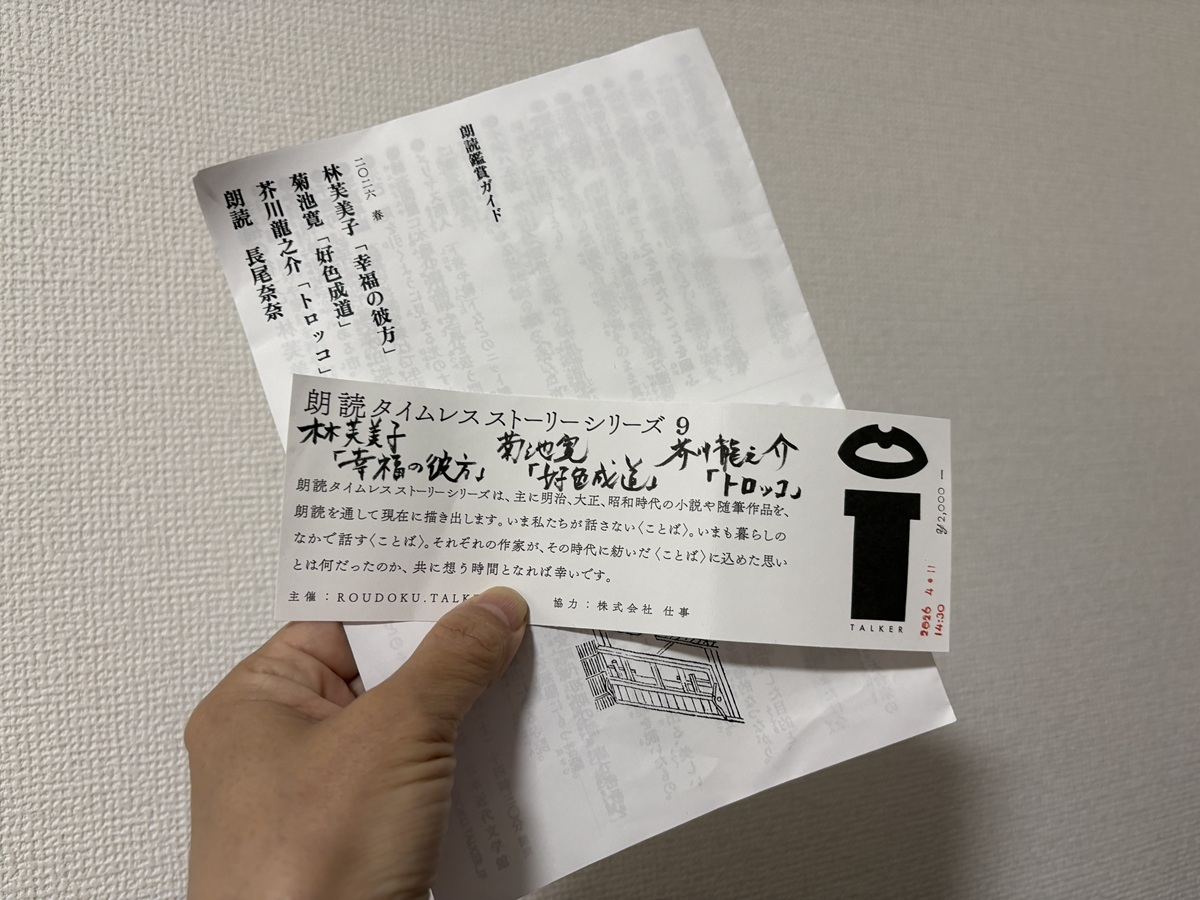 朗読鑑賞ガイド
二〇二六 春
林芙美子「幸福の彼方」
菊池寛「好色成道」
芥川龍之介「トロッコ」
朗読 長尾奈奈
朗読タイムレスストーリーシリーズ 9
林芙美子「幸福の彼方」
菊池寛「好色成道」
芥川龍之介「トロッコ」
朗読タイムレスストーリーシリーズは、主に明治、大正、昭和時代の小説や随筆作品を、
朗読を通して現在に描き出します。いま私たちが話さない〈ことば〉。いまも暮らしの
なかで話す〈ことば〉。それぞれの作家が、その時代に紡いだ〈ことば〉に込めた思い
とは何だったのか、共に想う時間となれば幸いです。
主催：ROUDOKU.TALK
協力：株式会社 仕事
TALKER
2026 4.11
14:30
¥2,000 ー